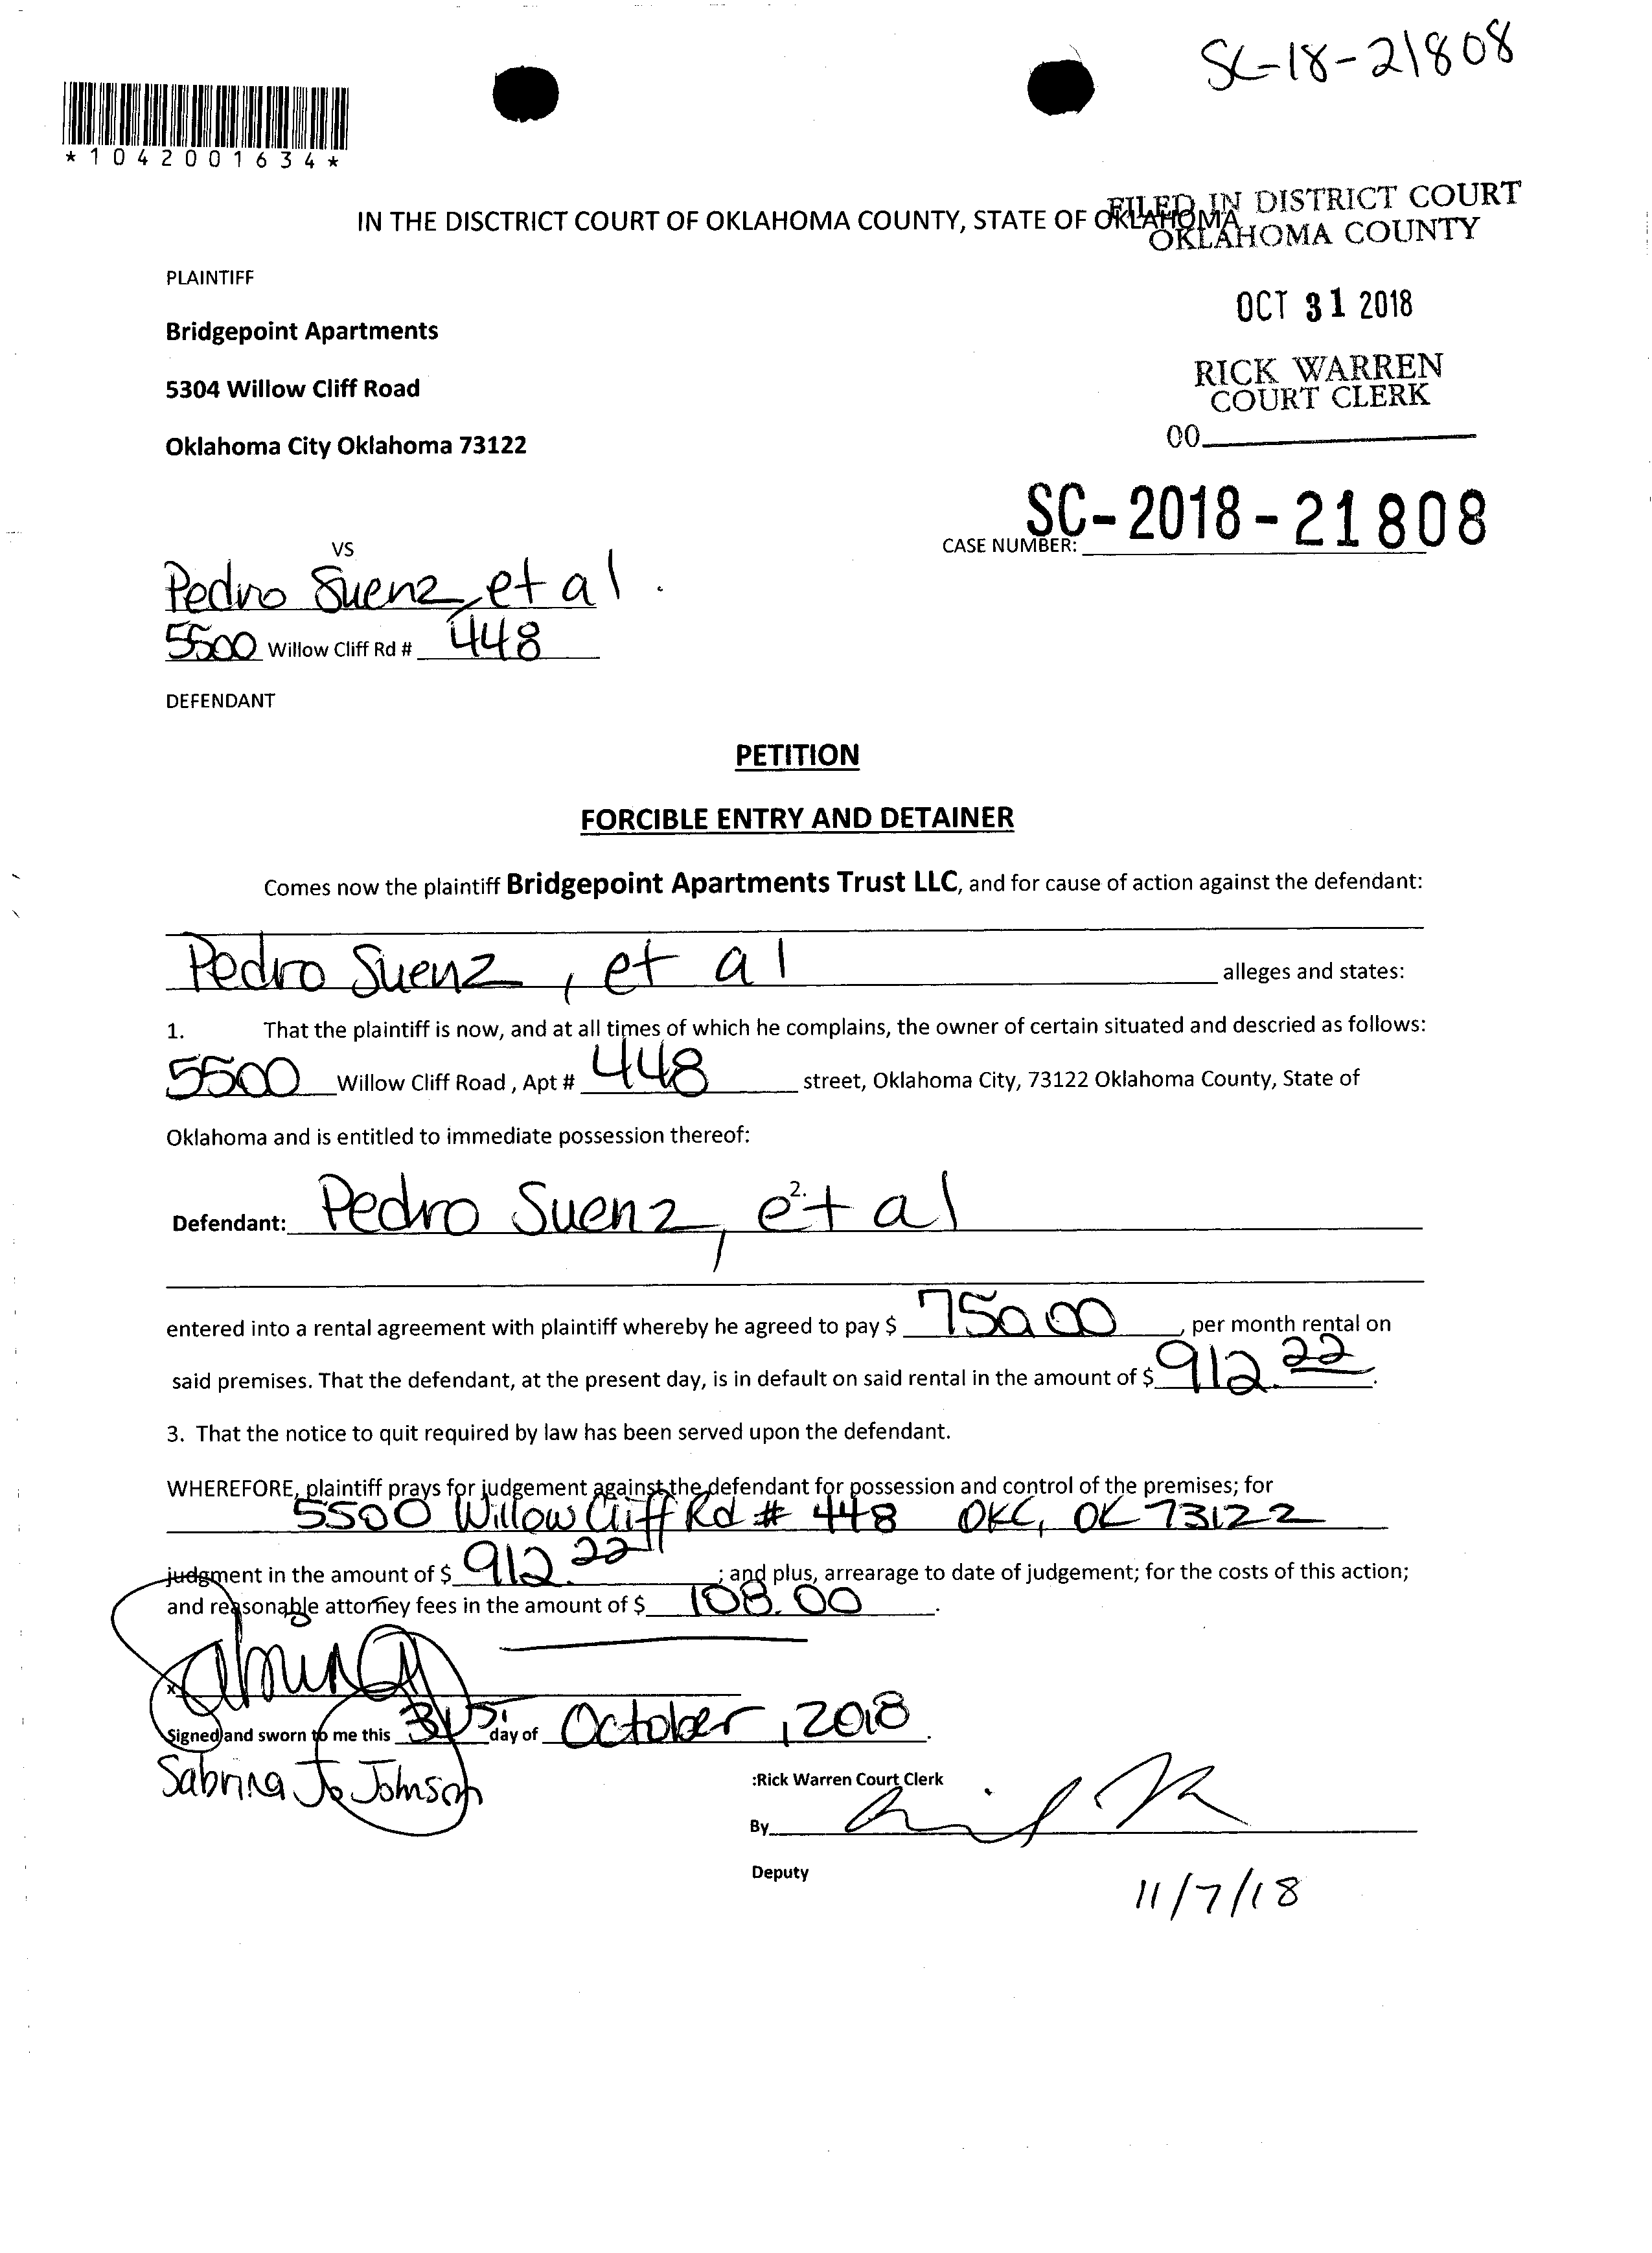 SC-18-21808
*1042001634*
IN THE DISCTRICT COURT OF OKLAHOMA COUNTY, STATE OF OKLAHOMA
FILED IN DISTRICT COURT
OKLAHOMA COUNTY
PLAINTIFF
OCT 31 2018
Bridgepoint Apartments
RICK WARREN
COURT CLERK
5304 Willow Cliff Road
Oklahoma City Oklahoma 73122
00
SC-2018-21808
CASE NUMBER:
VS
Pedro Suenz, et al.
5500 Willow Cliff Rd # 448
DEFENDANT
PETITION
FORCIBLE ENTRY AND DETAINER
Comes now the plaintiff Bridgepoint Apartments Trust LLC, and for cause of action against the defendant:
Pedro Suenz, et al alleges and states:
1. That the plaintiff is now, and at all times of which he complains, the owner of certain situated and descried as follows:
5500 Willow Cliff Road , Apt # 448 street, Oklahoma City, 73122 Oklahoma County, State of
Oklahoma and is entitled to immediate possession thereof:
2.
Defendant: Pedro Suenz, et al
entered into a rental agreement with plaintiff whereby he agreed to pay $ 750.00, per month rental on
said premises. That the defendant, at the present day, is in default on said rental in the amount of $ 912.22.
3. That the notice to quit required by law has been served upon the defendant.
WHEREFORE, plaintiff prays for judgement against the defendant for possession and control of the premises; for
5500 Willow Cliff Rd # 448 OKC, OK 73122
judgment in the amount of $ 912.22; and plus, arrearage to date of judgement; for the costs of this action;
and reasonable attorney fees in the amount of $ 108.00.
x
Signed and sworn to me this 31st day of October, 2018.
Sabrina Jo Johnson
:Rick Warren Court Clerk
By
Deputy
11/7/18